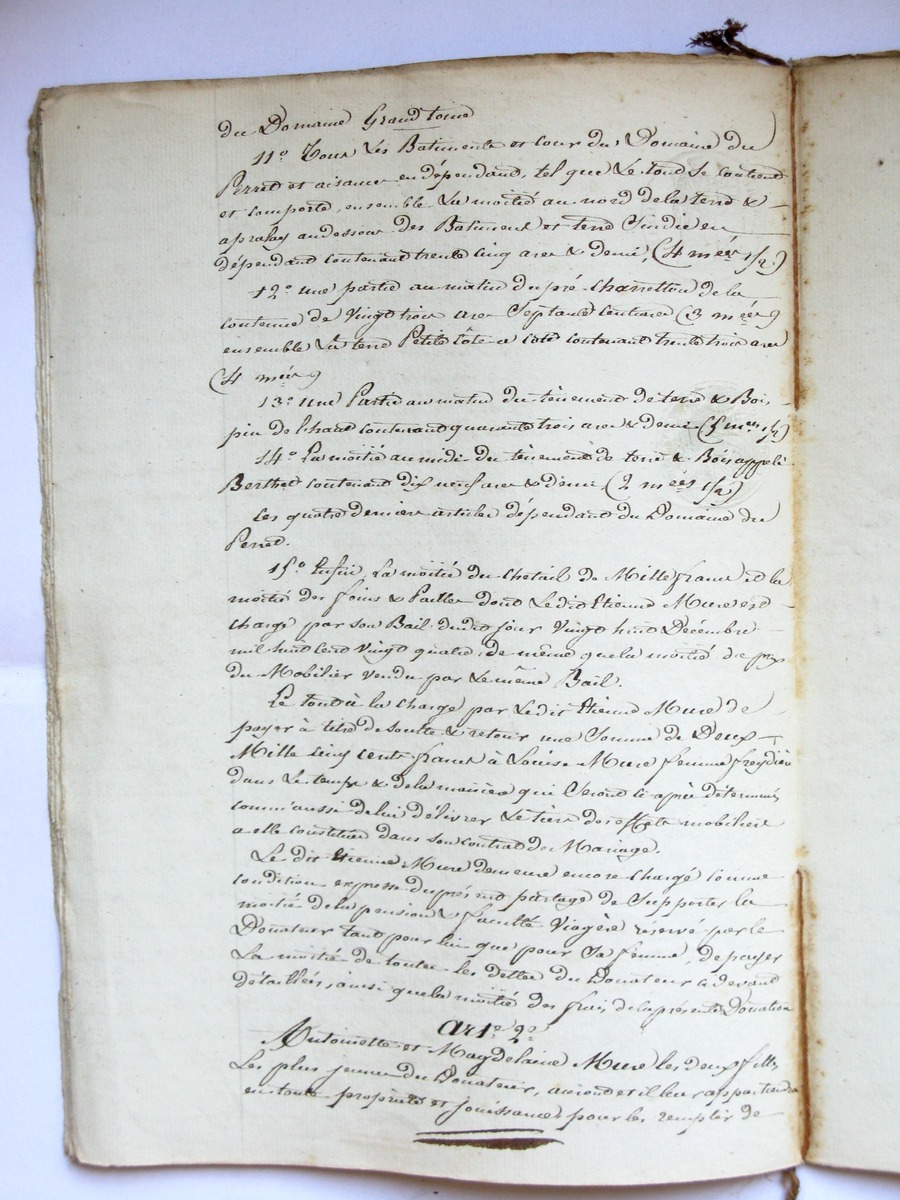 du Domaine Grand'terre
11º Tous Les Batiments et cour du Domaine du
Perret et aisances en dépendant, tel que Le tout Se contient
et comporte, ensemble La moitié au nord de la terre &
apralay au dessous des Batiments et terre Jusdie en
dépendant contenant trente cinq ares & demi, (4 mées 1/2)
12º une partie au matin du pré Charretton de la
contenue de Vingt trois ares Septante Centiares (3 mées)
ensemble La terre Petite Côte a coté contenant trente trois ares
(4 mées)
13º Une Partie au matin du tènement de terre & Bois
pin de l'hard contenant quarante trois ares & demi (5 mées 1/2)
14º La moitié au midi du tènement de terre & Bois appelé
Berthet contenant dix neuf ares & demi (2 mées 1/2)
Les quatre derniers articles dépendant du Domaine du
Perret.
15º Enfin, La moitié du Chetail de Mille francs et la
moitié des foins & Pailles dont Ledit Etienne Mure est
chargé par son Bail dudit jour Vingt huit Décembre
mil huit cent Vingt quatre, de même que la moitié du prix
du Mobilier vendu par Le même Bail.
Le tout à la Charge par Ledit Etienne Mure de
payer à titre de soulte & retour une Somme de Deux
Mille cinq cents francs à Louise Mure femme freydière
dans Le temps & de la manière qui Seront ci après déterminés
comm'aussi de lui délivrer Le tiers des effets mobiliers
a elle constitués dans son contrat de Mariage.
Le dit Etienne Mure demeure encore Chargé comme
condition expresse du présent partage de Supporter la
moitié de la pension & faculté Viagère reservé par le
Donateur tant pour lui que pour Sa femme, de payer
La moitié de toutes les dettes du Donateur ci devant
détaillées, ainsi que la moitié des frais de la présente Donation
Art. 2º
Antoinette et Magdelaine Mure les deux filles
Les plus jeunes du Donateur, auront et il leur appartiendra
en toute propriété et jouissance, pour les remplir de